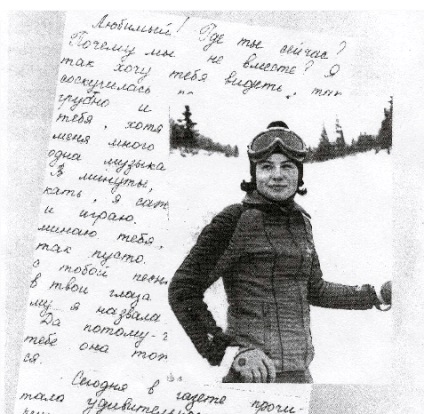 Любимый! Где ты сейчас?
Почему мы не вместе? Я
так хочу тебя видеть,
соскучилась
грубно и
тебя, хотя
меня много
одна музыка
В минуты,
кать, я
и играю.
минаю тебя,
так пусто.
с тобой
в твои глаза
му я назвала
Да потому-
тебе она
ся.
Сегодня в газете прочи-
тала